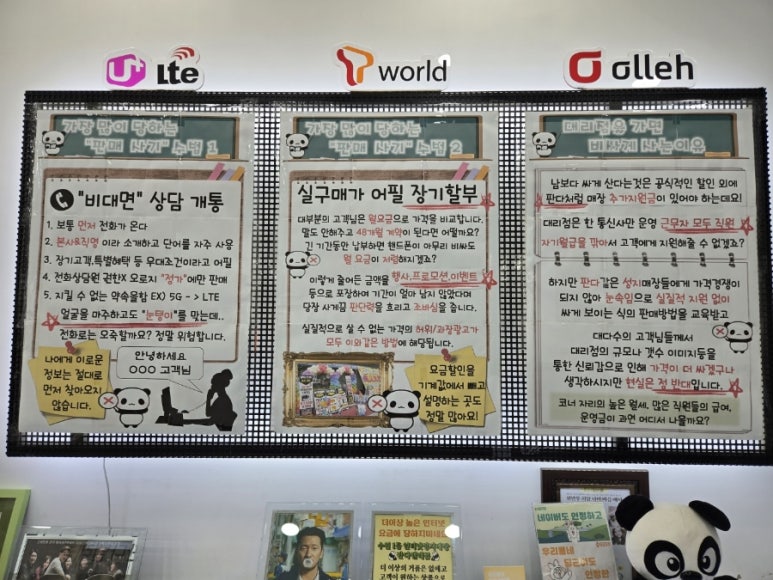 U+ Lte
T world
olleh
가장 많이 당하는
"판매 사기" 수법 1
"비대면" 상담 개통
1. 보통 먼저 전화가 온다
2. 본사&직영 이라 소개하고 단어를 자주 사용
3. 장기고객,특별혜택 등 우대조건이라고 어필
4. 전화상담원 권한X 오로지 "정가"에만 판매
5. 지킬 수 없는 약속물함 EX) 5G -> LTE
얼굴을 마주하고도 "눈탱이"를 맞는데..
전화로는 오죽할까요? 정말 위험합니다.
나에게 이로운
정보는 절대로
먼저 찾아오지
않습니다.
안녕하세요
OOO 고객님
가장 많이 당하는
"판매 사기" 수법 2
실구매가 어필 장기할부
대부분의 고객님은 월요금으로 가격을 비교합니다.
말도 안해주고 48개월 계약이 된다면 어떨까요?
긴 기간동안 납부하면 핸드폰이 아무리 비싸도
월 요금이 저렴해지겠죠?
이렇게 줄어든 금액을 행사,프로모션,이벤트
등으로 포장하며 기간이 얼마 남지 않았다며
당장 사게끔 판단력을 흐리고 조바심을 줍니다.
실질적으로 살 수 없는 가격의 허위/과장광고가
모두 이와같은 방법에 해당됩니다.
요금할인을
기계값에서 빼고
설명하는 곳도
정말 많아요!
대리점을 가면
비싸게 사는이유
남보다 싸게 산다는것은 공식적인 할인 외에
판다처럼 매장 추가지원금이 있어야 하는데요!
대리점은 한 통신사만 운영 근무자 모두 직원
자기월급을 깎아서 고객에게 지원해줄 수 없겠죠?
하지만 판다같은 성지매장들에게 가격경쟁이
되지 않아 눈속임으로 실질적 지원 없이
싸게 보이는 식의 판매방법을 교육받고
대다수의 고객님들께서
대리점의 규모나 갯수 이미지등을
통한 신뢰감으로 인해 가격이 더 싸겠구나
생각하시지만 현실은 정 반대입니다.
코너 자리의 높은 월세, 많은 직원들의 급여,
운영금이 과연 어디서 나올까요?
더이상 높은 인터넷
요금에 당하지마세요!
더 이상의 거품은 없애고
고객이 원하는 상품으로
네이버도 인정하고
우리동네
당근이도
인정한